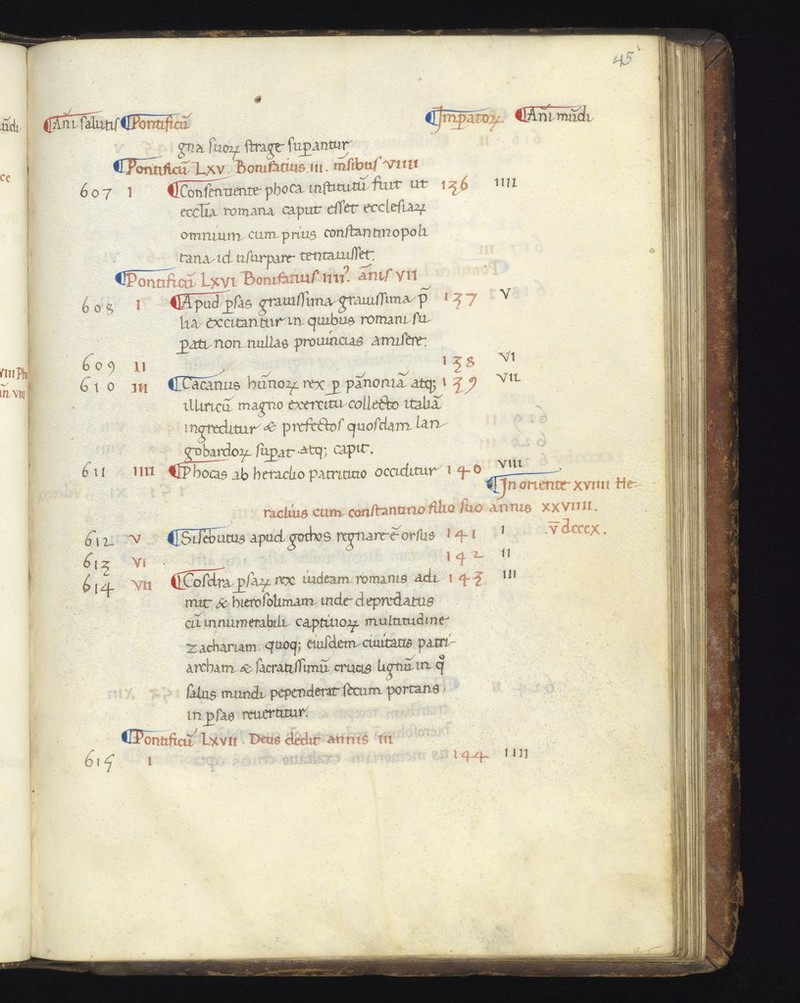 45
Āni salutis Pontificū Īmꝑatoꝝ Āni mūdi
gna suoꝝ strage suꝑantur
Pontificū Lxv. Bonifatius iii. mēsibus viiii
607 1 Consentiente phoca institutū fuit ut 136 iiii
ecclīa romana caput esset ecclesiaꝝ
omnium cum prius constantinopoli
tana id usurpare tentauisset.
Pontificū Lxvi Bonifatius iiii⁹. anīs vii
608 1 Apud ꝑsas grauissima grauissima p̄ 137 v
lia excitantur in quibus romani su
ꝑati non nullas prouincias amisere.
609 ii 138 vi
610 iii Cacanus hūnoꝝ rex ꝑ pānoniā atq; 139 vii
illiricū magno exercitu collecto italiā
ingreditur & prefectos quosdam lan
gobardoꝝ suꝑat atq; capit.
611 iiii Phocas ab heraclio patritio occiditur 140 viii
In oriente xviiii He-
raclius cum constantino filio suo annis xxviiii.
612 v Sisebutus apud gothos regnare ē orsus 141 i .v̄dcccx.
613 vi 142 ii
614 vii Cosdra ꝑsaꝝ rex iudeam romanis adi 143 iii
mit & hierosolimam inde depredatus
cū innumerabili captiuoꝝ multitudine
zachariam quoq; eiusdem ciuitatis patri-
archam & sacratissimū crucis lignū in qͦ
salus mundi pependerat secum portans
in ꝑsas reuertitur.
Pontificū Lxvii. Deus dedit annis iii
615 1 144 iiii